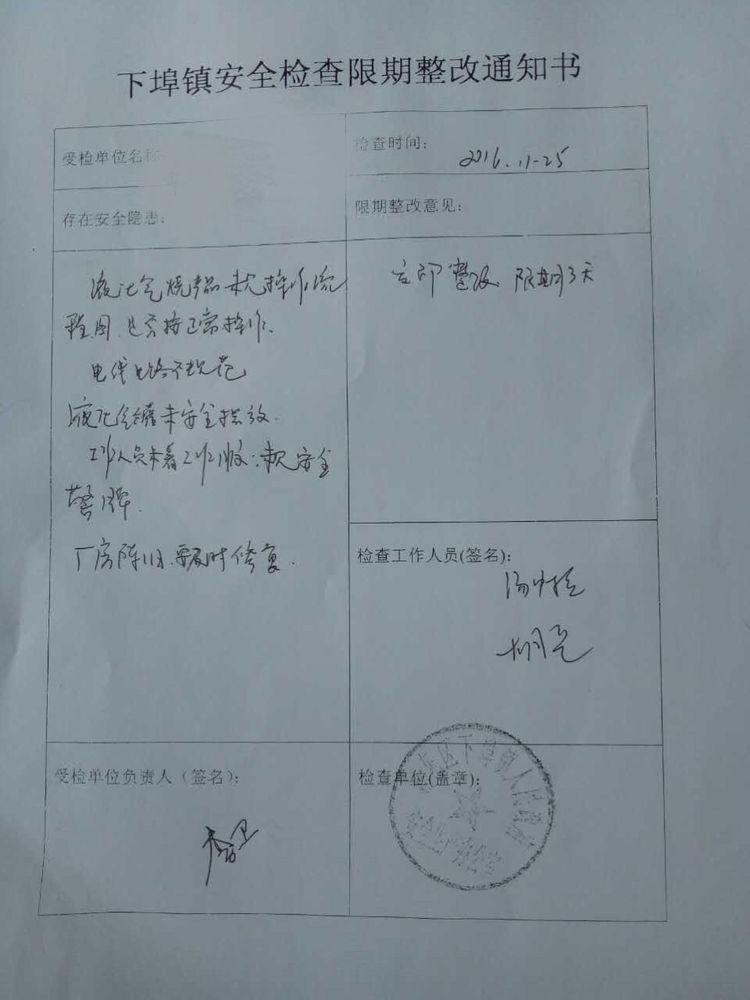 下埠镇安全检查限期整改通知书
受检单位名称
检查时间:
2016.11-25
存在安全隐患:
限期整改意见:
液化气烧 未见操作流
程图,是否按正常操作.
电线电路不规范
液化气罐未安全摆放.
工作人员未着工作服;未见安全
警示牌.
厂房陈旧.要及时修复.
立即整改.限期3天
检查工作人员(签名):
受检单位负责人（签名）:
检查单位(盖章):
下埠镇人民政府